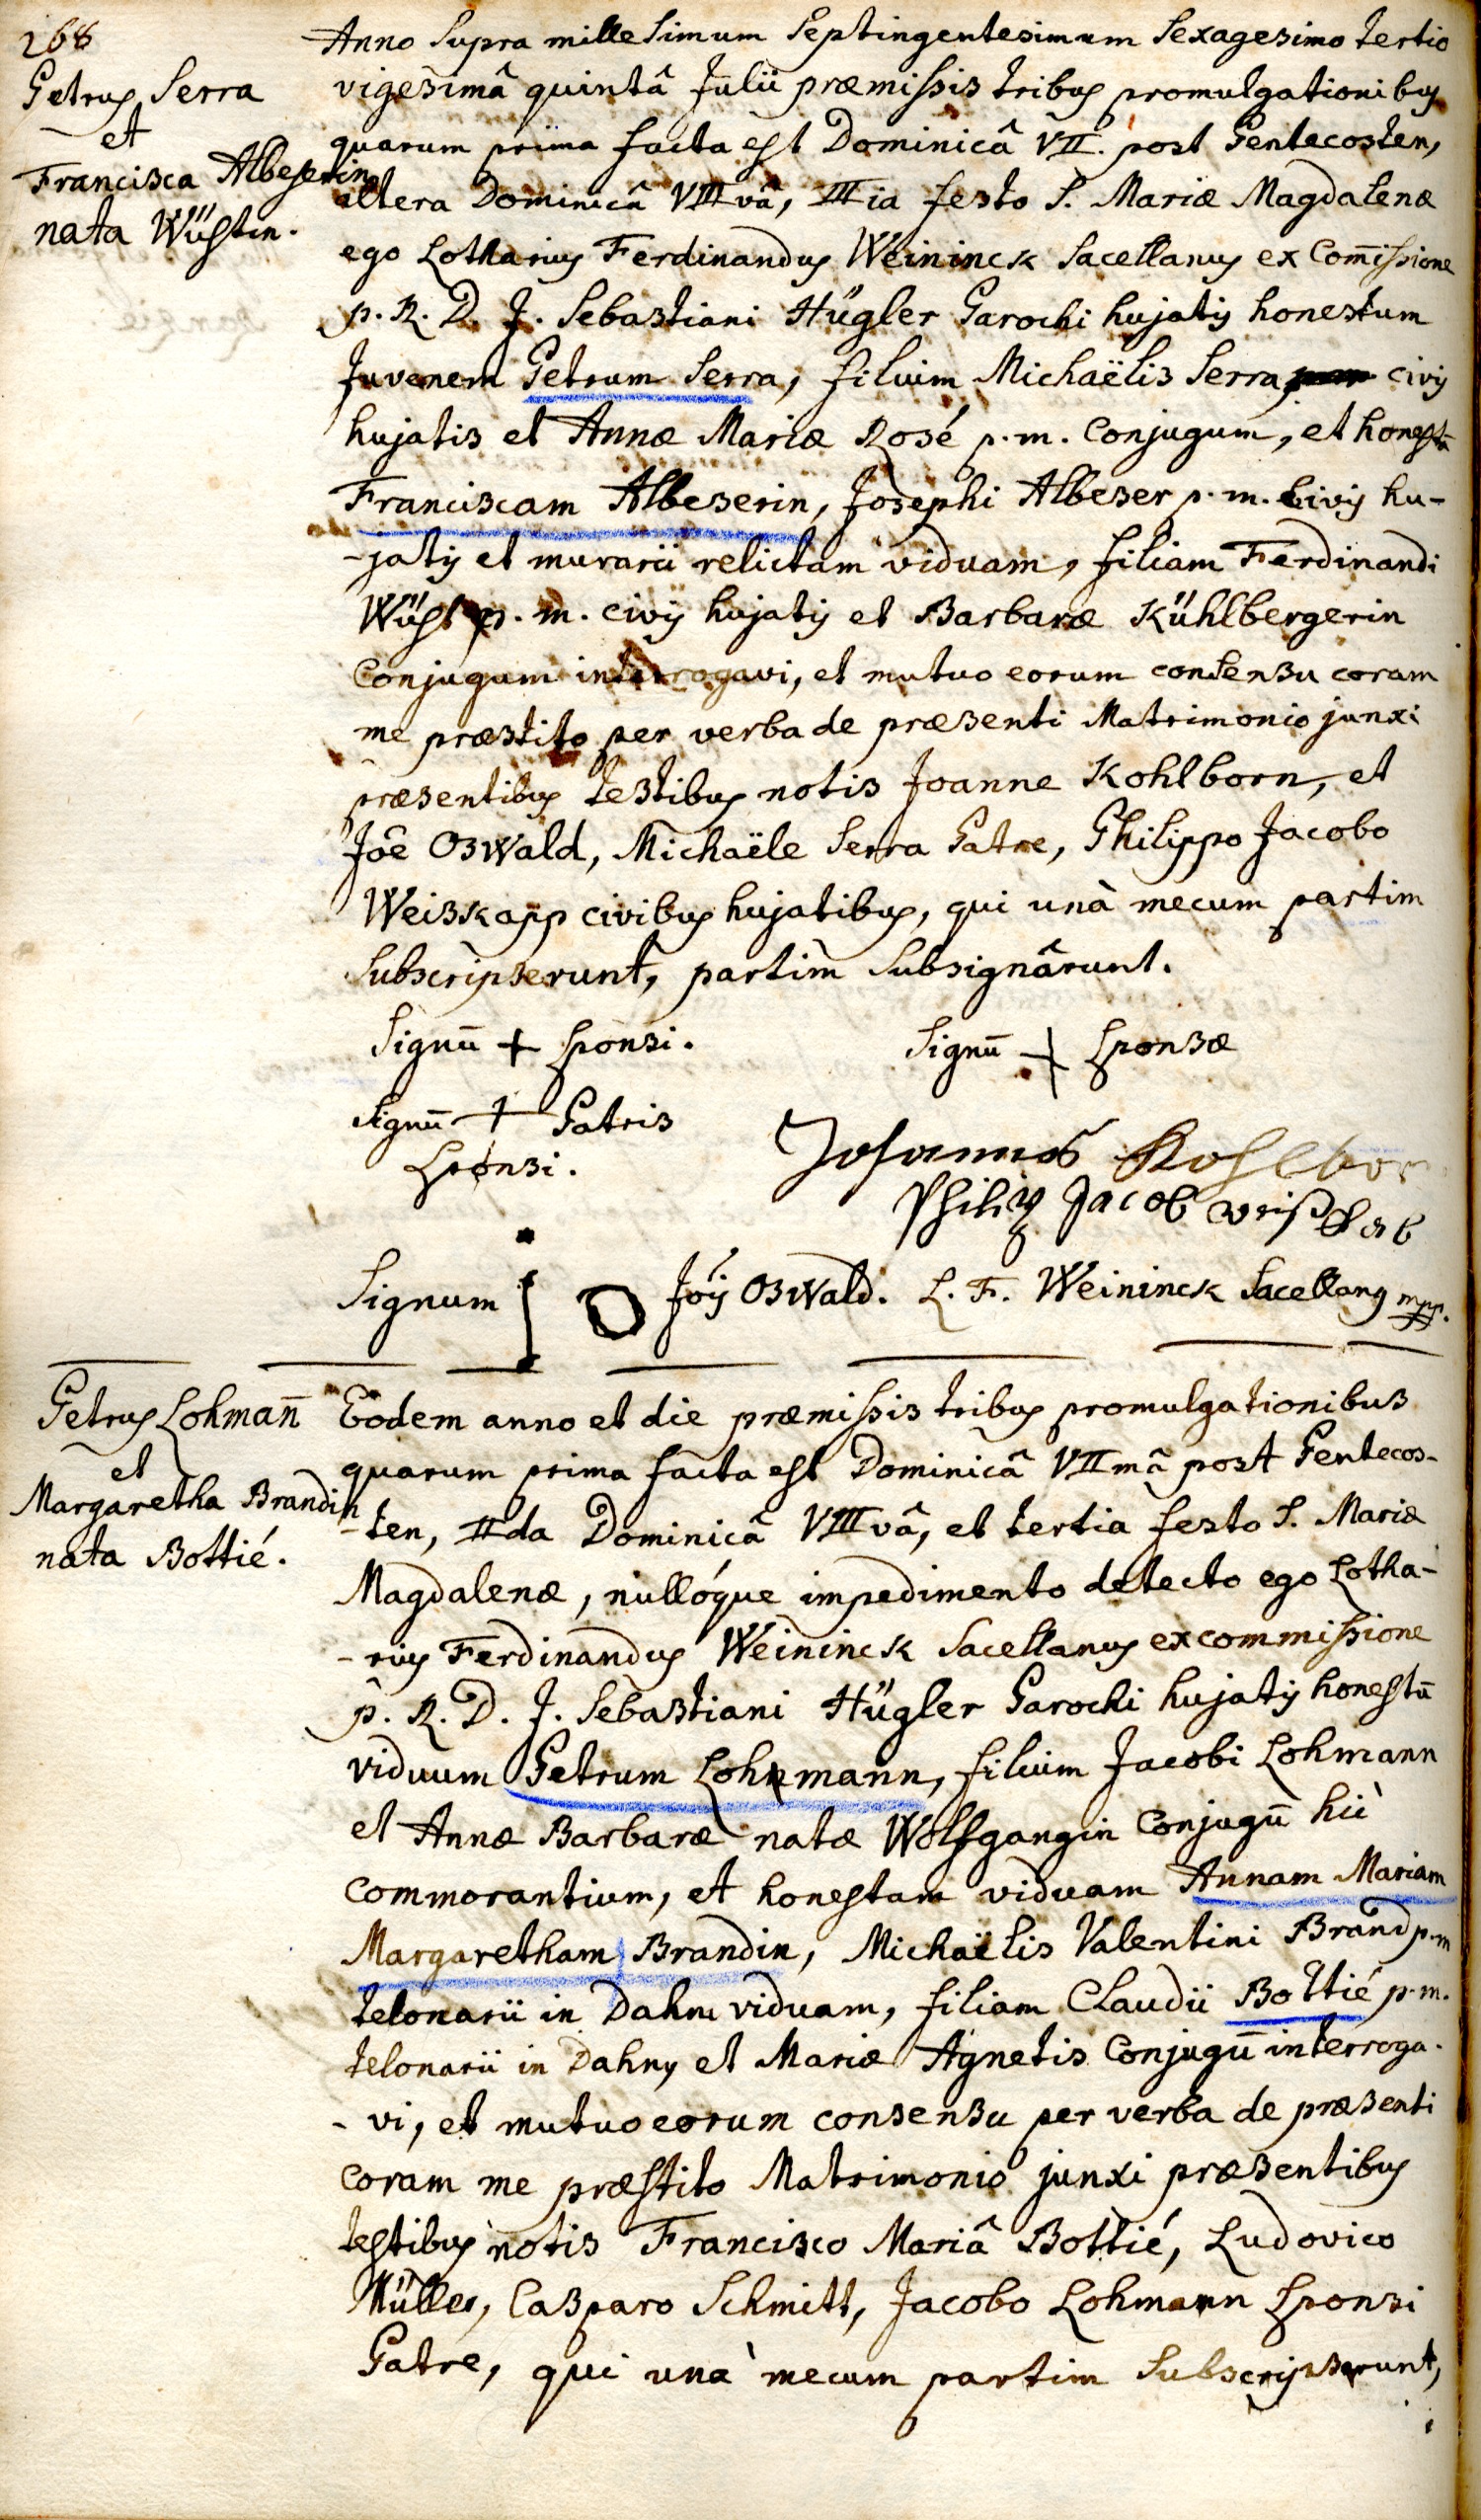 268
Petrus Serra
et
Francisca Albeserin
nata Wüstin.
Anno supra millesimum septingentesimum sexagesimo tertio
vigesimâ quintâ Julii præmissis tribus promulgationibus
quarum prima facta est Dominicâ VII. post Pentecosten,
altera Dominicâ VIIIvâ, IIIia festo S. Mariæ Magdalenæ
ego Lotharius Ferdinandus Weininck Sacellanus ex Com̄issione
p. R. D. J. Sebastiani Hügler Parochi hujatis honestum
Juvenem Petrum Serra, filium Michaëlis Serra civis
hujatis et Annæ Mariæ Rosé p. m. Conjugum, et honestā
Franciscam Albeserin, Josephi Albeser p. m. Civis hu-
-jatis et murarii relictam viduam, filiam Ferdinandi
Wüst p. m. civis hujatis et Barbaræ Kühlbergerin
Conjugum interrogavi, et mutuo eorum consensu coram
me præstito per verba de præsenti Matrimonio junxi
præsentibus testibus notis Joanne Kohlborn, et
Joê Oswald, Michaële Serra Patre, Philippo Jacobo
Weiskapp civibus hujatibus, qui unà mecum partim
subscripserunt, partim subsignârunt.
Signū + Sponsi. Signū + Sponsæ
Signū + Patris
Sponsi.
Johannes Kohlbor
Philip Jacob weißkab
Signum O Jois Oswald. L. F. Weininck Sacellanus mpp.
Petrus Lohman̄
et
Margaretha Brandin
nata Bottié.
Eodem anno et die præmissis tribus promulgationibus
quarum prima facta est Dominicâ VIImâ post Pentecos-
-ten, IIda Dominicâ VIIIvâ, et tertia festo S. Mariæ
Magdalenæ, nullóque impedimento detecto ego Lotha-
-rius Ferdinandus Weininck Sacellanus ex commissione
p. R. D. J. Sebastiani Hügler Parochi hujatis honestū
viduum Petrum Lohmann, filium Jacobi Lohmann
et Annæ Barbaræ natæ Wolfgangin Conjugū hic
commorantium, et honestam viduam Annam Mariam
Margaretham Brandin, Michaëlis Valentini Brand p. m
telonarii in Dahn viduam, filiam Claudii Bottié p. m.
telonarii in Dahn, et Mariæ Agnetis Conjugū interroga-
-vi, et mutuo eorum consensu per verba de præsenti
coram me præstito Matrimonio junxi præsentibus
testibus notis Francisco Mariâ Bottié, Ludovico
Müller, Casparo Schmitt, Jacobo Lohmann Sponsi
Patre, qui unà mecum partim subscripserunt,